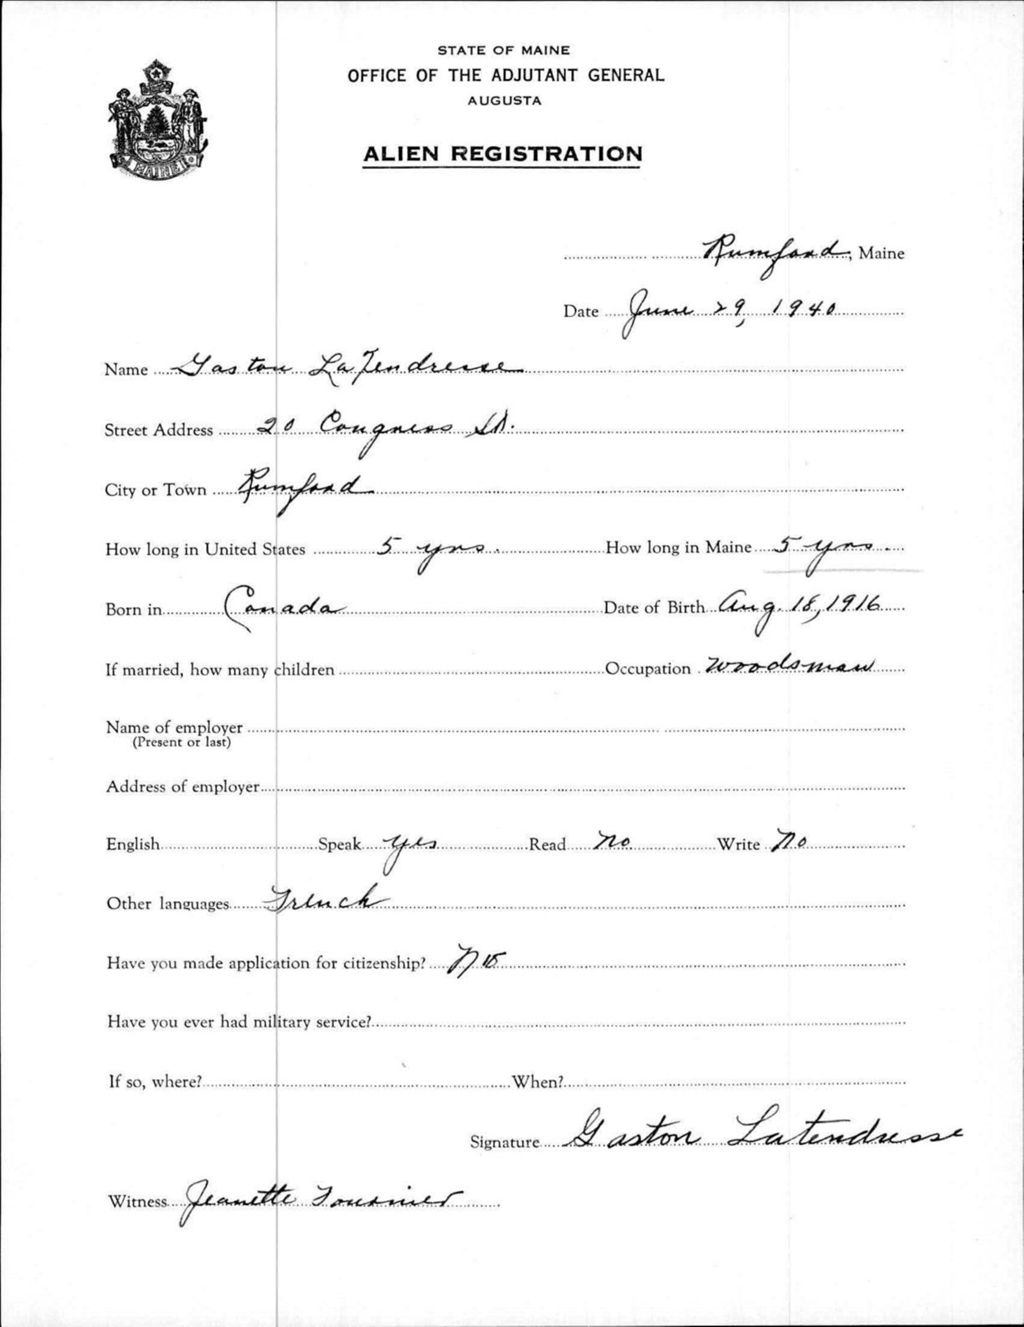 STATE OF MAINE
OFFICE OF THE ADJUTANT GENERAL
AUGUSTA
ALIEN REGISTRATION
MAINE
Rumford, Maine
Date June 29, 1940
Name Gaston LaTendresse
Street Address 20 Congress St.
City or Town Rumford
How long in United States 5 yrs. How long in Maine 5 yrs.
Born in Canada Date of Birth Aug. 18, 1916
If married, how many children Occupation Woodsman
Name of employer
(Present or last)
Address of employer
English Speak Yes Read No. Write No
Other languages French
Have you made application for citizenship? No
Have you ever had military service?
If so, where? When?
Signature Gaston Latendresse
Witness Jeanette Fournier